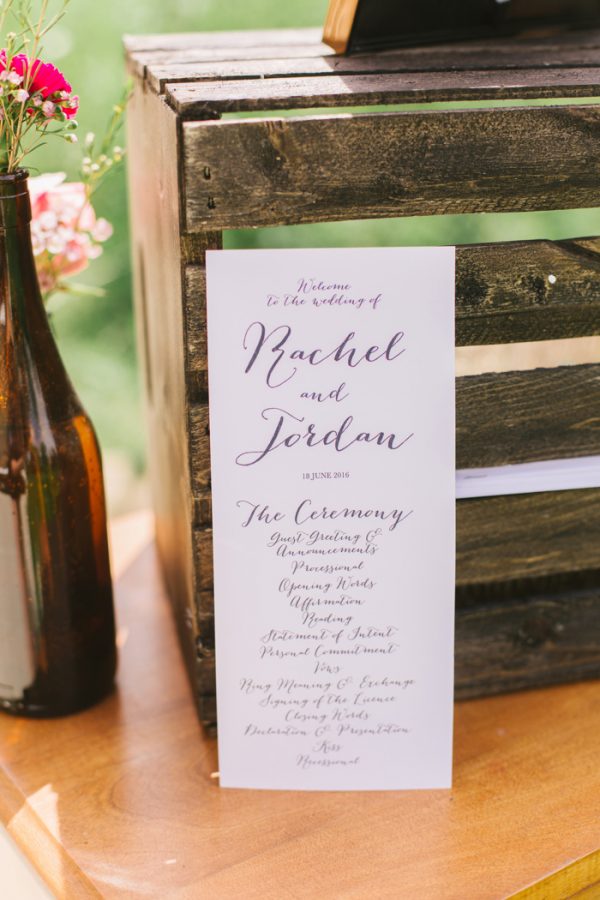 Welcome
to the wedding of
Rachel
and
Jordan
18 JUNE 2016
The Ceremony
Guest Greeting &
Announcements
Processional
Opening Words
Affirmation
Reading
Statement of Intent
Personal Commitment
Vows
Ring Meaning & Exchange
Signing of the Licence
Closing Words
Declaration & Presentation
Kiss
Recessional